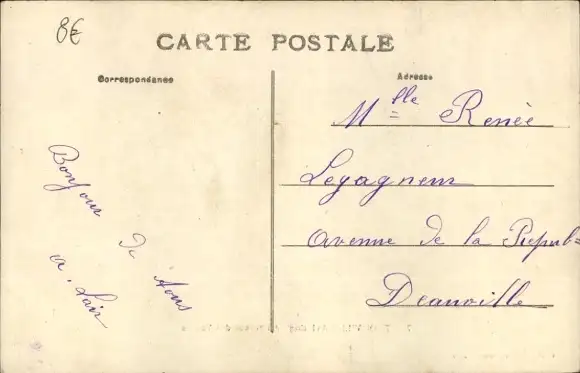 8€
CARTE POSTALE
Correspondance
Adresse
Mlle Renée
Legagneur
avenue de la Républ
Deauville
Bonjour
de tous
a. Lair